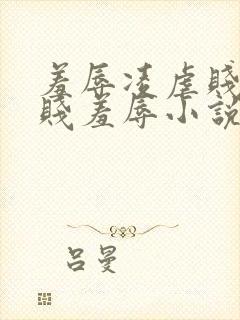 羞辱凌虐賤
賤羞辱小說
吕曼